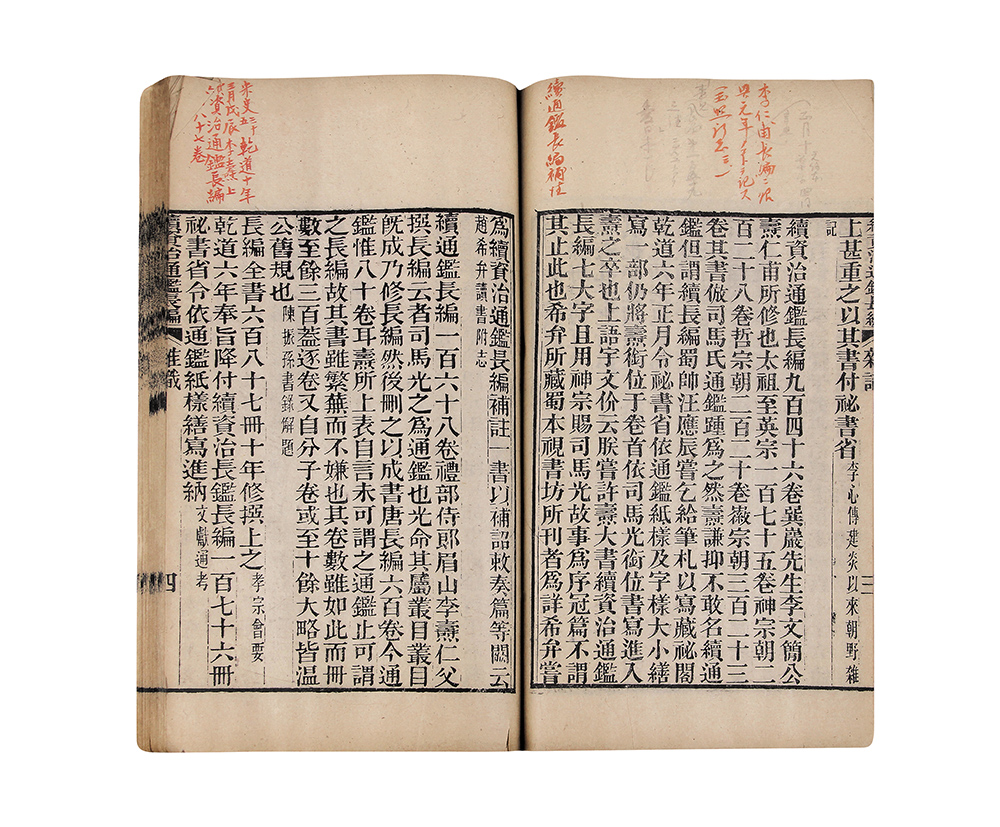 續通鑑長編補註
上甚重之以其書付祕書省李心傳建炎以來朝野雜
記
續資治通鑑長編九百四十六卷巽巖先生李文簡公
燾仁甫所修也太祖至英宗一百七十五卷神宗朝二
百二十八卷哲宗朝二百二十卷徽宗朝三百二十三
卷其書倣司馬氏通鑑踵爲之然燾謙抑不敢名續通
鑑但謂續長編蜀帥汪應辰嘗乞給筆札以寫藏祕閣
乾道六年正月令祕書省依通鑑紙樣及字樣大小繕
寫一部仍將燾銜位于卷首依司馬光銜位書寫進入
燾之卒也上語宇文价云朕嘗許燾大書續資治通鑑
長編七大字且用神宗賜司馬光故事爲序冠篇不謂
其止此也希弁所藏蜀本視書坊所刊者爲詳希弁嘗
宋史三十五乾道十年
三月戊辰李燾上
資治通鑑長編
八十七卷
爲續資治通鑑長編補註一書以補詔敕奏篇等闕云
趙希弁讀書附志
續通鑑長編一百六十八卷禮部侍郎眉山李燾仁父
撰長編云者司馬光之爲通鑑也光命其屬叢目叢目
旣成乃修長編然後刪之以成書唐長編六百卷今通
鑑惟八十卷耳燾所上表自言未可謂之通鑑止可謂
之長編故其書雖繁蕪而不嫌也其卷數雖如此而冊
數至餘三百蓋逐卷又自分子卷或至十餘大略皆溫
公舊規也陳振孫書錄解題
長編全書六百八十七冊十年修撰上之孝宗會要
乾道六年奉旨降付續資治長鑑長編一百七十六冊
祕書省令依通鑑紙樣繕寫進納文獻通考
續資治通鑑長編
雜識
四